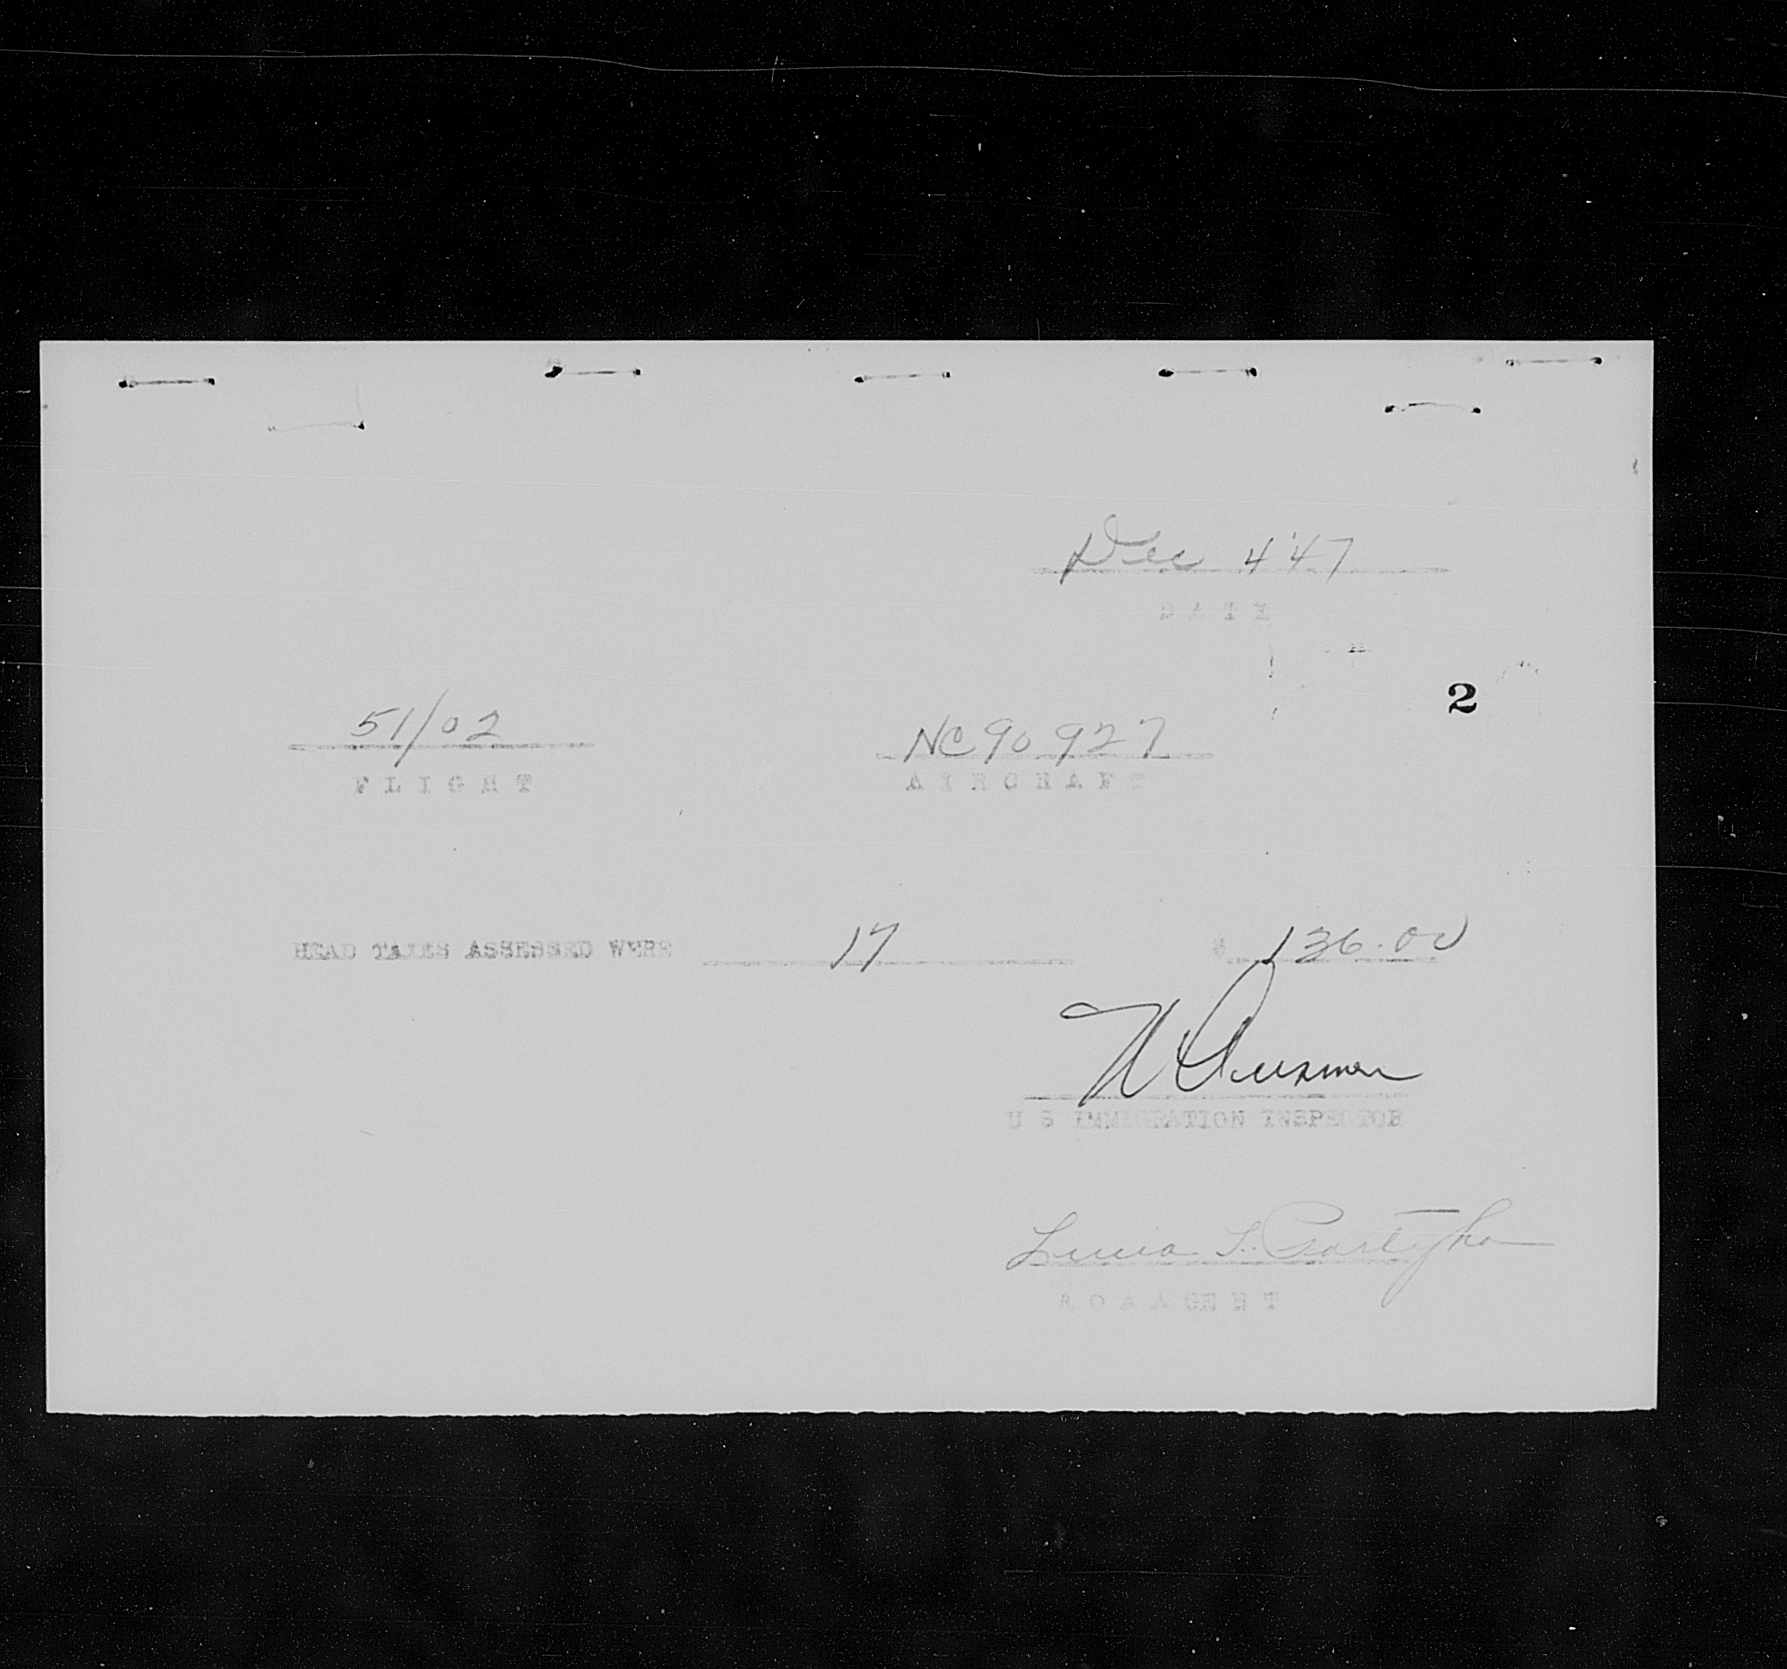 Dec 4 '47
DATE
2
51/02
NC90927
FLIGHT
AIRCRAFT
HEAD TAXES ASSESSED WERE 17 $ 136.00
U S IMMIGRATION INSPECTOR
AOA AGENT